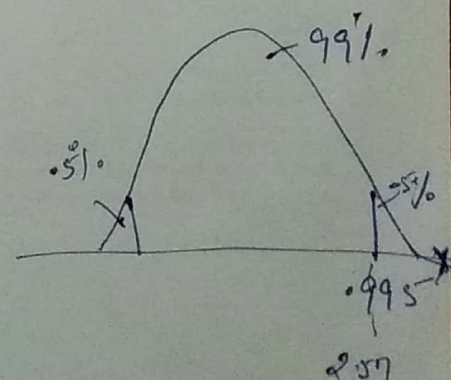 99%
.5%
.5%
.995
2.57